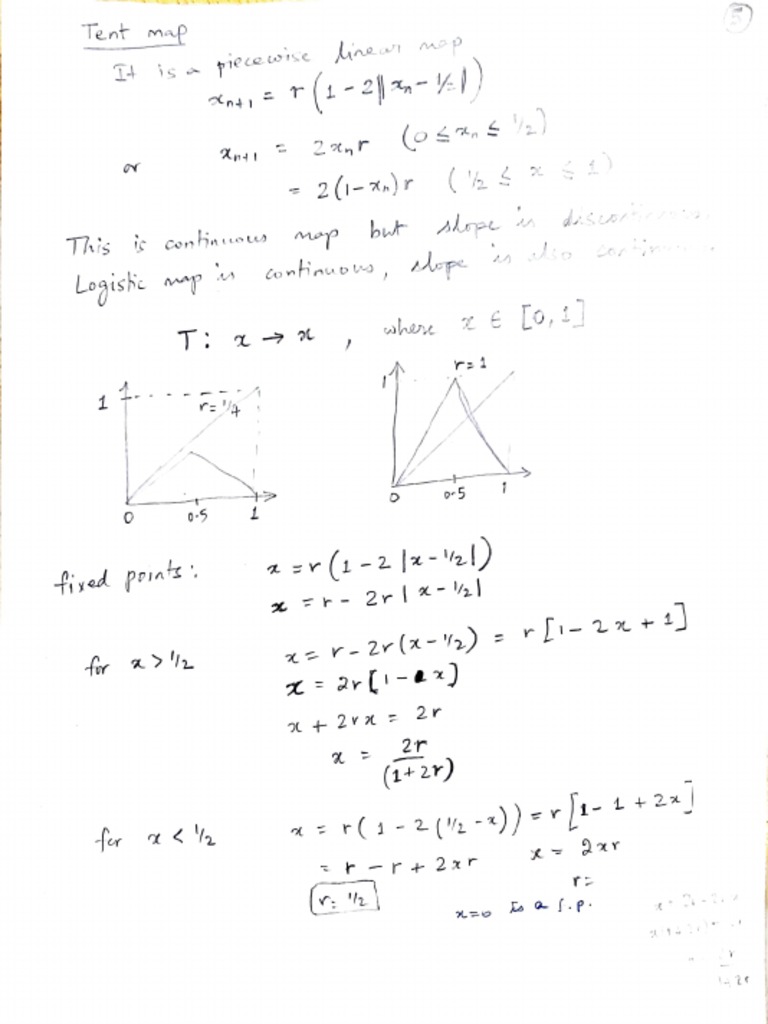 5
Tent map
It is a piecewise linear map
xₙ₊₁ = r (1 - 2||xₙ - 1/2|)
or xₙ₊₁ = 2xₙr (0 ≤ xₙ ≤ 1/2)
= 2(1-xₙ)r (1/2 ≤ x ≤ 1)
This is continuous map but slope is
Logistic map is continuous, slope is also
T: x → x , where x ∈ [0,1]
1 1 r=1/4
0 0.5 1
1 r=1
0 0.5 1
fixed points: x = r(1-2|x-1/2|)
x = r - 2r|x-1/2|
for x > 1/2 x = r-2r(x-1/2) = r[1-2x+1]
x = 2r[1-x]
x + 2rx = 2r
x = 2r/(1+2r)
for x < 1/2 x = r(1-2(1/2-x)) = r[1-1+2x]
= r-r+2xr x = 2xr
r = 1/2 r=
x=0 is a f.p.